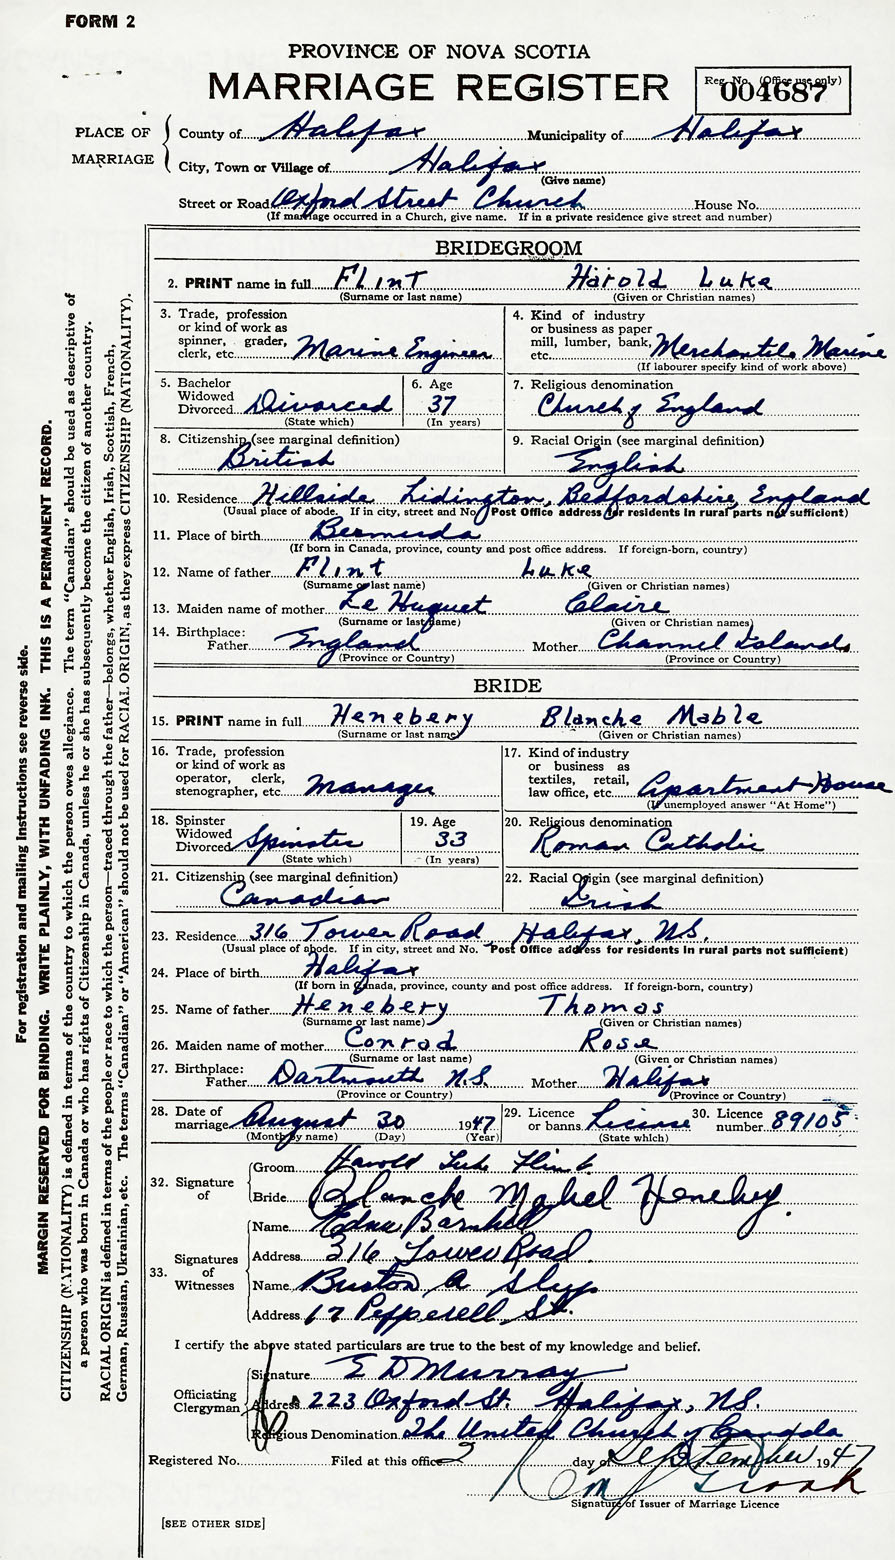 FORM 2
PROVINCE OF NOVA SCOTIA
MARRIAGE REGISTER
Reg. No. (Office use only)
004687
PLACE OF MARRIAGE
County of Halifax Municipality of Halifax
City, Town or Village of Halifax
(Give name)
Street or Road Oxford Street Church House No.
(If marriage occurred in a Church, give name. If in a private residence give street and number)
BRIDEGROOM
2. PRINT name in full Flint Harold Luke
(Surname or last name) (Given or Christian names)
3. Trade, profession or kind of work as spinner, grader, clerk, etc. Marine Engineer
4. Kind of industry or business as paper mill, lumber, bank, etc. Merchantile Marine
(If labourer specify kind of work above)
5. Bachelor Widowed Divorced Divorced
(State which)
6. Age 37
(In years)
7. Religious denomination
Church of England
8. Citizenship (see marginal definition)
British
9. Racial Origin (see marginal definition)
English
10. Residence Hillside Lidington, Bedfordshire, England
(Usual place of abode. If in city, street and No. Post Office address for residents in rural parts not sufficient)
11. Place of birth Bermuda
(If born in Canada, province, county and post office address. If foreign-born, country)
12. Name of father Flint Luke
(Surname or last name) (Given or Christian names)
13. Maiden name of mother Le Huquet Claire
(Surname or last name) (Given or Christian names)
14. Birthplace: Father England Mother Channel Islands
(Province or Country) (Province or Country)
BRIDE
15. PRINT name in full Henebery Blanche Mable
(Surname or last name) (Given or Christian names)
16. Trade, profession or kind of work as operator, clerk, stenographer, etc. Manager
17. Kind of industry or business as textiles, retail, law office, etc. Apartment House
(If unemployed answer "At Home")
18. Spinster Widowed Divorced Spinster
(State which)
19. Age 33
(In years)
20. Religious denomination
Roman Catholic
21. Citizenship (see marginal definition)
Canadian
22. Racial Origin (see marginal definition)
Irish
23. Residence 316 Tower Road Halifax, N.S.
(Usual place of abode. If in city, street and No. Post Office address for residents in rural parts not sufficient)
24. Place of birth Halifax
(If born in Canada, province, county and post office address. If foreign-born, country)
25. Name of father Henebery Thomas
(Surname or last name) (Given or Christian names)
26. Maiden name of mother Conrad Rose
(Surname or last name) (Given or Christian names)
27. Birthplace: Father Dartmouth N.S. Mother Halifax
(Province or Country) (Province or Country)
28. Date of marriage August 30 1947
(Month by name) (Day) (Year)
29. Licence or banns License
(State which)
30. Licence number 89105
32. Signature of
Groom Harold Luke Flint
Bride Blanche Mabel Henebery.
33. Signatures of Witnesses
Name Edna Barnhill
Address 316 Tower Road
Name Burton A Slyp
Address 17 Pepperell St.
I certify the above stated particulars are true to the best of my knowledge and belief.
Officiating Clergyman
Signature E D Murray
Address 223 Oxford St. Halifax, N.S.
Religious Denomination The United Church of Canada
Registered No. Filed at this office 2 day of September 1947
Signature of Issuer of Marriage Licence
[SEE OTHER SIDE]
For registration and mailing instructions see reverse side.
MARGIN RESERVED FOR BINDING. WRITE PLAINLY, WITH UNFADING INK. THIS IS A PERMANENT RECORD.
CITIZENSHIP (NATIONALITY) is defined in terms of the country to which the person owes allegiance. The term "Canadian" should be used as descriptive of
a person who was born in Canada or who has rights of Citizenship in Canada, unless he or she has subsequently become the citizen of another country.
RACIAL ORIGIN is defined in terms of the people or race to which the person—traced through the father—belongs, whether English, Irish, Scottish, French,
German, Russian, Ukrainian, etc. The terms "Canadian" or "American" should not be used for RACIAL ORIGIN, as they express CITIZENSHIP (NATIONALITY).